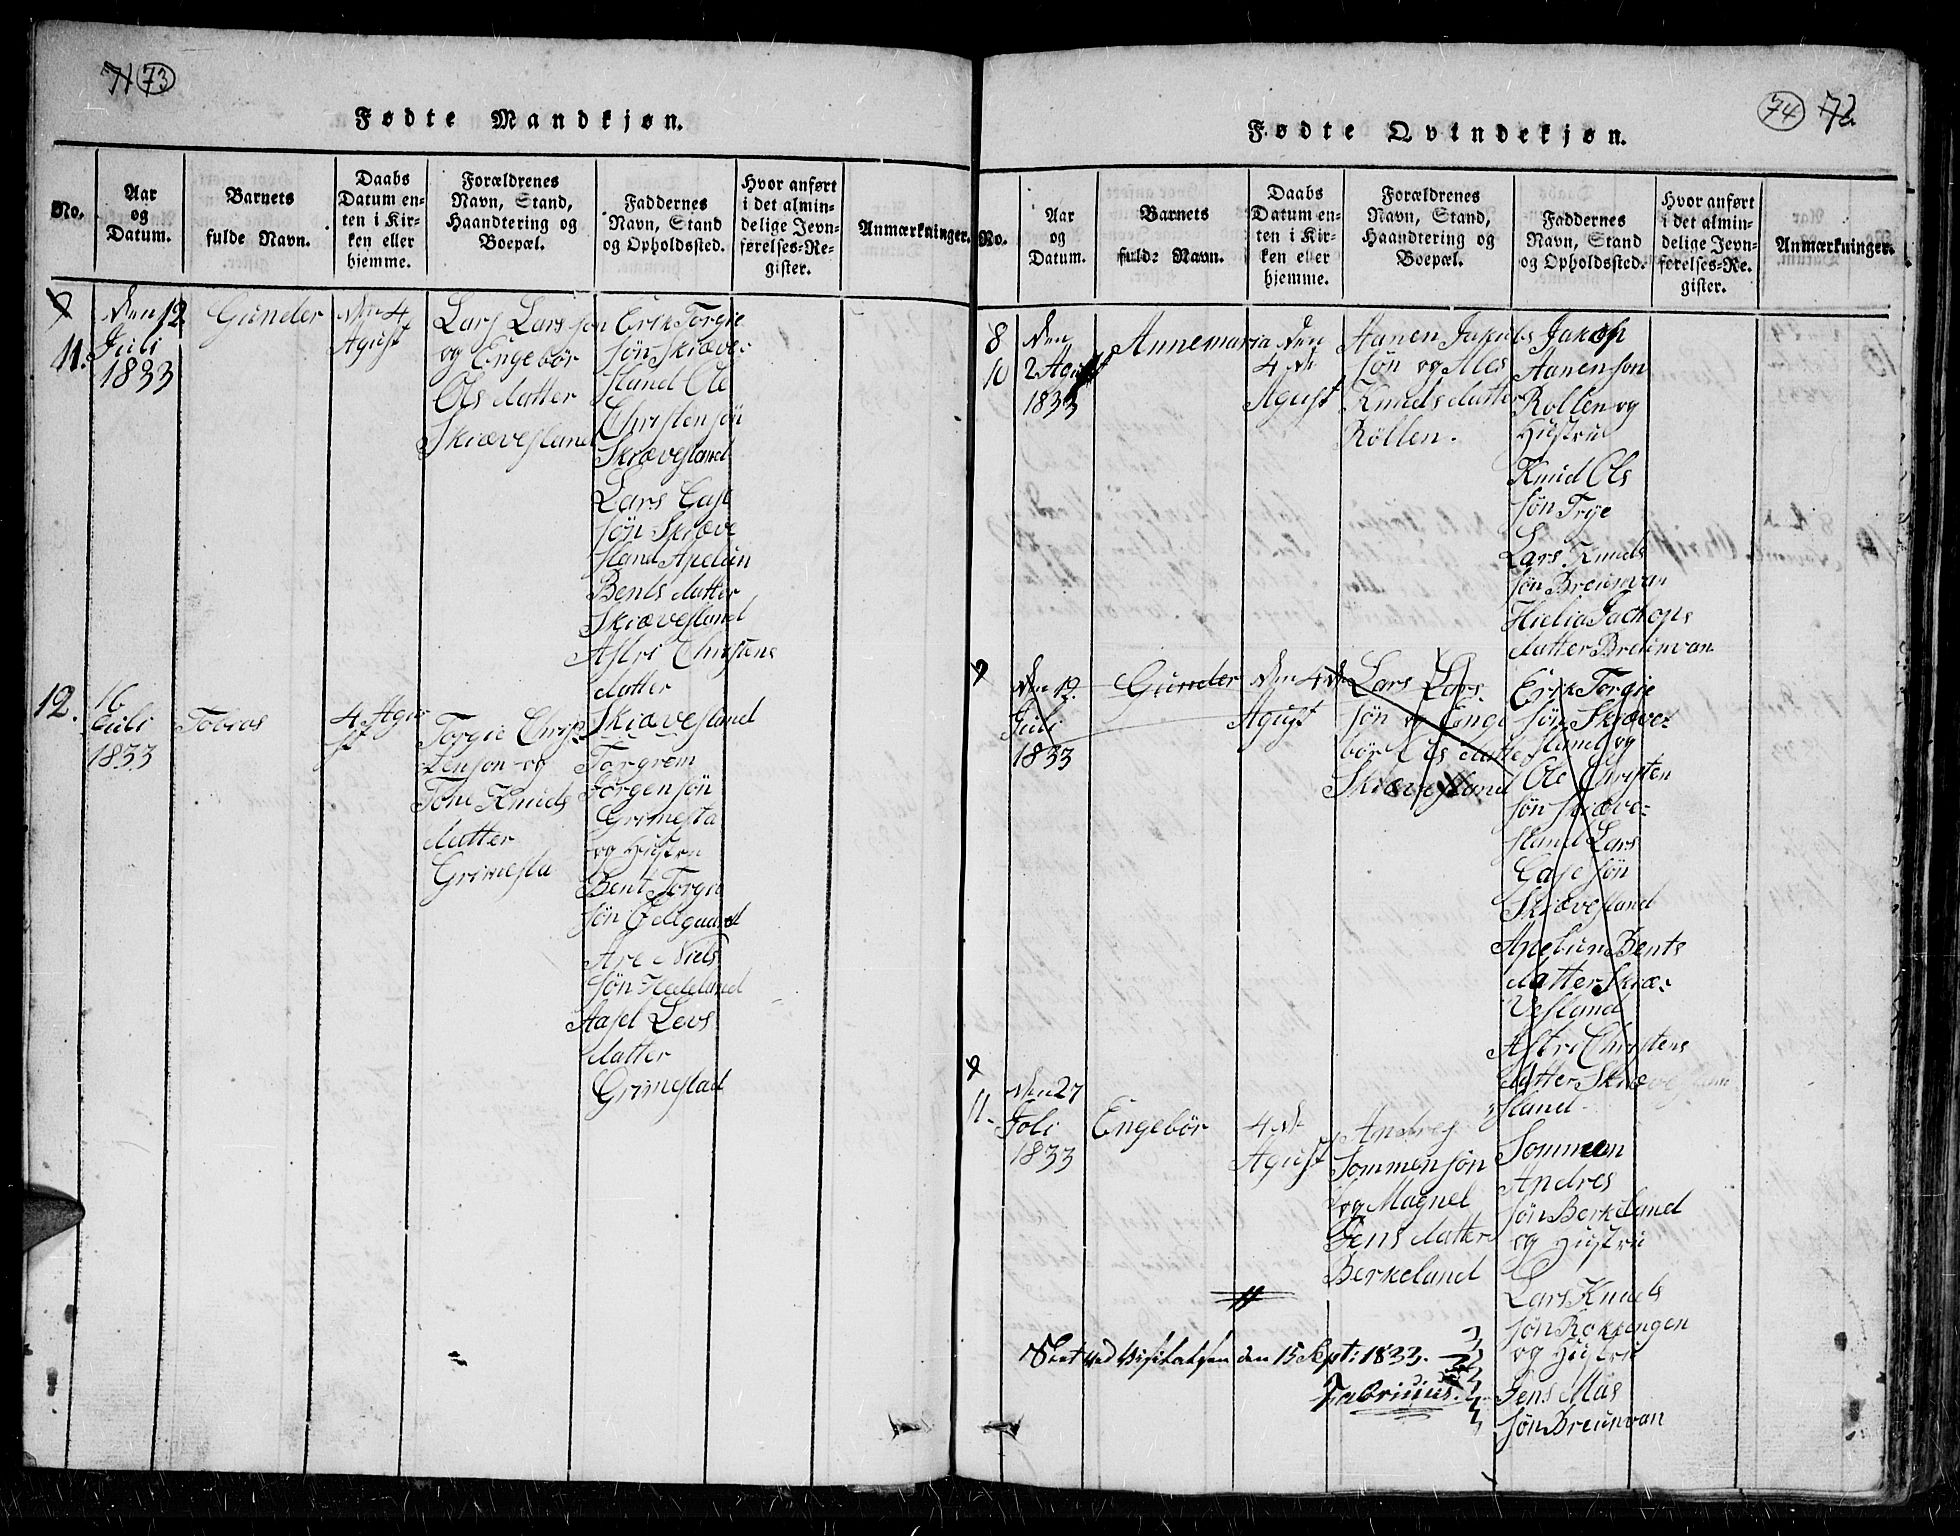 71 73
Fødte Mandkjøn.
No.
Aar
og
Datum.
Barnets
fulde Navn.
Daabs
Datum en-
ten i Kir-
ken eller
hjemme.
Forældrenes
Navn, Stand,
Haandtering og
Boepæl.
Faddernes
Navn, Stand
og Opholdssted.
Hvor anført
i det almin-
delige Jevn-
førelses-Re-
gister.
Anmærkninger.
9
11.
den 12
Juli
1833
Gunder
den 4
Agust
Lars Larssøn
og Engebør
Ols datter
Skiævesland
Erik Torgie
søn Skiæve-
sland Ole
Christensøn
Skiævesland
Lars Case
søn Skiæve
sland Apelun
Bents datter
Skiævesland
Astri Christens
datter
Skiævesland
12.
16
Juli
1833
Tobias
4 Agu
st
Torgie Chris-
tenson og
Tone Knuds
datter
Grimesta
Torgrem
Jørgensøn
Grimesta
og Hustru
Bent Torgie
søn
Are Niels
søn
Aasel Levs
datter
Grimestad
74 72
Fødte Qvindekjøn.
No.
Aar
og
Datum.
Barnets
fulde Navn.
Daabs
Datum en-
ten i Kir-
ken eller
hjemme.
Forældrenes
Navn, Stand,
Haandtering og
Boepæl.
Faddernes
Navn, Stand
og Opholdssted.
Hvor anført
i det almin-
delige Jevn-
førelses-Re-
gister.
Anmærkninger.
8
10
den
2 Agust
1833
Annemaria
den
4 de
Agust
Aanen Jakobs
søn og Ales
Knuds datter
Røllen.
Jakop
Aanenson
Rollen og
Hustru
Knud Ols
søn Trye
Lars Knuds
søn Breunvan
Hielia Jachops
datter Breunvan
9
den 12
Juli
1833
Gunder
den 4 de
Agust
Lars Lars
søn og Enge
bør Ols datter
Skiævesland
Erik Torgie
søn Skiæve-
sland og
Ole Christen
søn Skiæve-
sland Lars
Case søn
Skiævesland
Apelun Bents
datter Skiæ-
vesland
Astri Christens
datter Skiæve
sland.
9
11.
den 27
Joli
1833
Engebør
4 de
Agust
Andres
Sommensøn
og Magnel
Jens datter
Berkeland
Sommen
Andres
søn Berkeland
og Hustru
Lars Knuds
søn Rokkengen
og Hustru
Jens Mas
søn Breunvan
Seet ved Visitatsen den 15 Sept: 1833.
Fabricius.